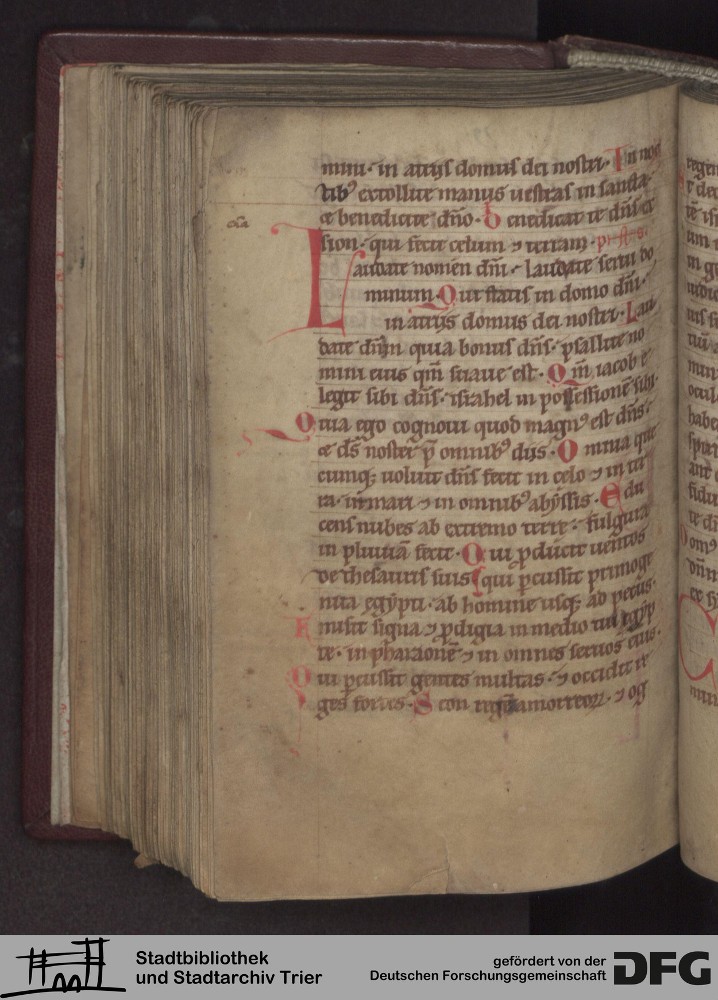 mini· in atrijs domus dei nostri· In noc
tib9 extollite manus uestras in sancta·
et benedicite dn̄o· benedicat te dn̄s ex
sion· qui fecit celum ⁊ terram·
Laudate nomen dn̄i· laudate serui do
minum· Qui statis in domo dn̄i·
in atrijs domus dei nostri· Lau
date dn̄m quia bonus dn̄s· psallite no
mini eius qm̄ suaue est· Qm̄ iacob e
legit sibi dn̄s· israhel in possessionē sibi·
Quia ego cognoui quod magn9 est dn̄s·
et ds̄ noster p̄ omnib9 dijs· Omnia que
cumq; uoluit dn̄s fecit in celo ⁊ in ter
ra· in mari ⁊ in omnib9 abyssis· Edu
cens nubes ab extremo terre· fulgura
in pluuiā fecit· Qui ꝓducit uentos
de thesauris suis qui ꝑcussit primoge
nita egypti· ab homine usq; ad pecus·
Emisit signa ⁊ ꝓdigia in medio tui egyp
te· in pharaonē ⁊ in omnes seruos eius·
Qui ꝑcussit gentes multas· ⁊ occidit re
ges fortes· Seon regē amorreoꝝ· ⁊ og
Stadtbibliothek
und Stadtarchiv Trier
gefördert von der
Deutschen Forschungsgemeinschaft
DFG